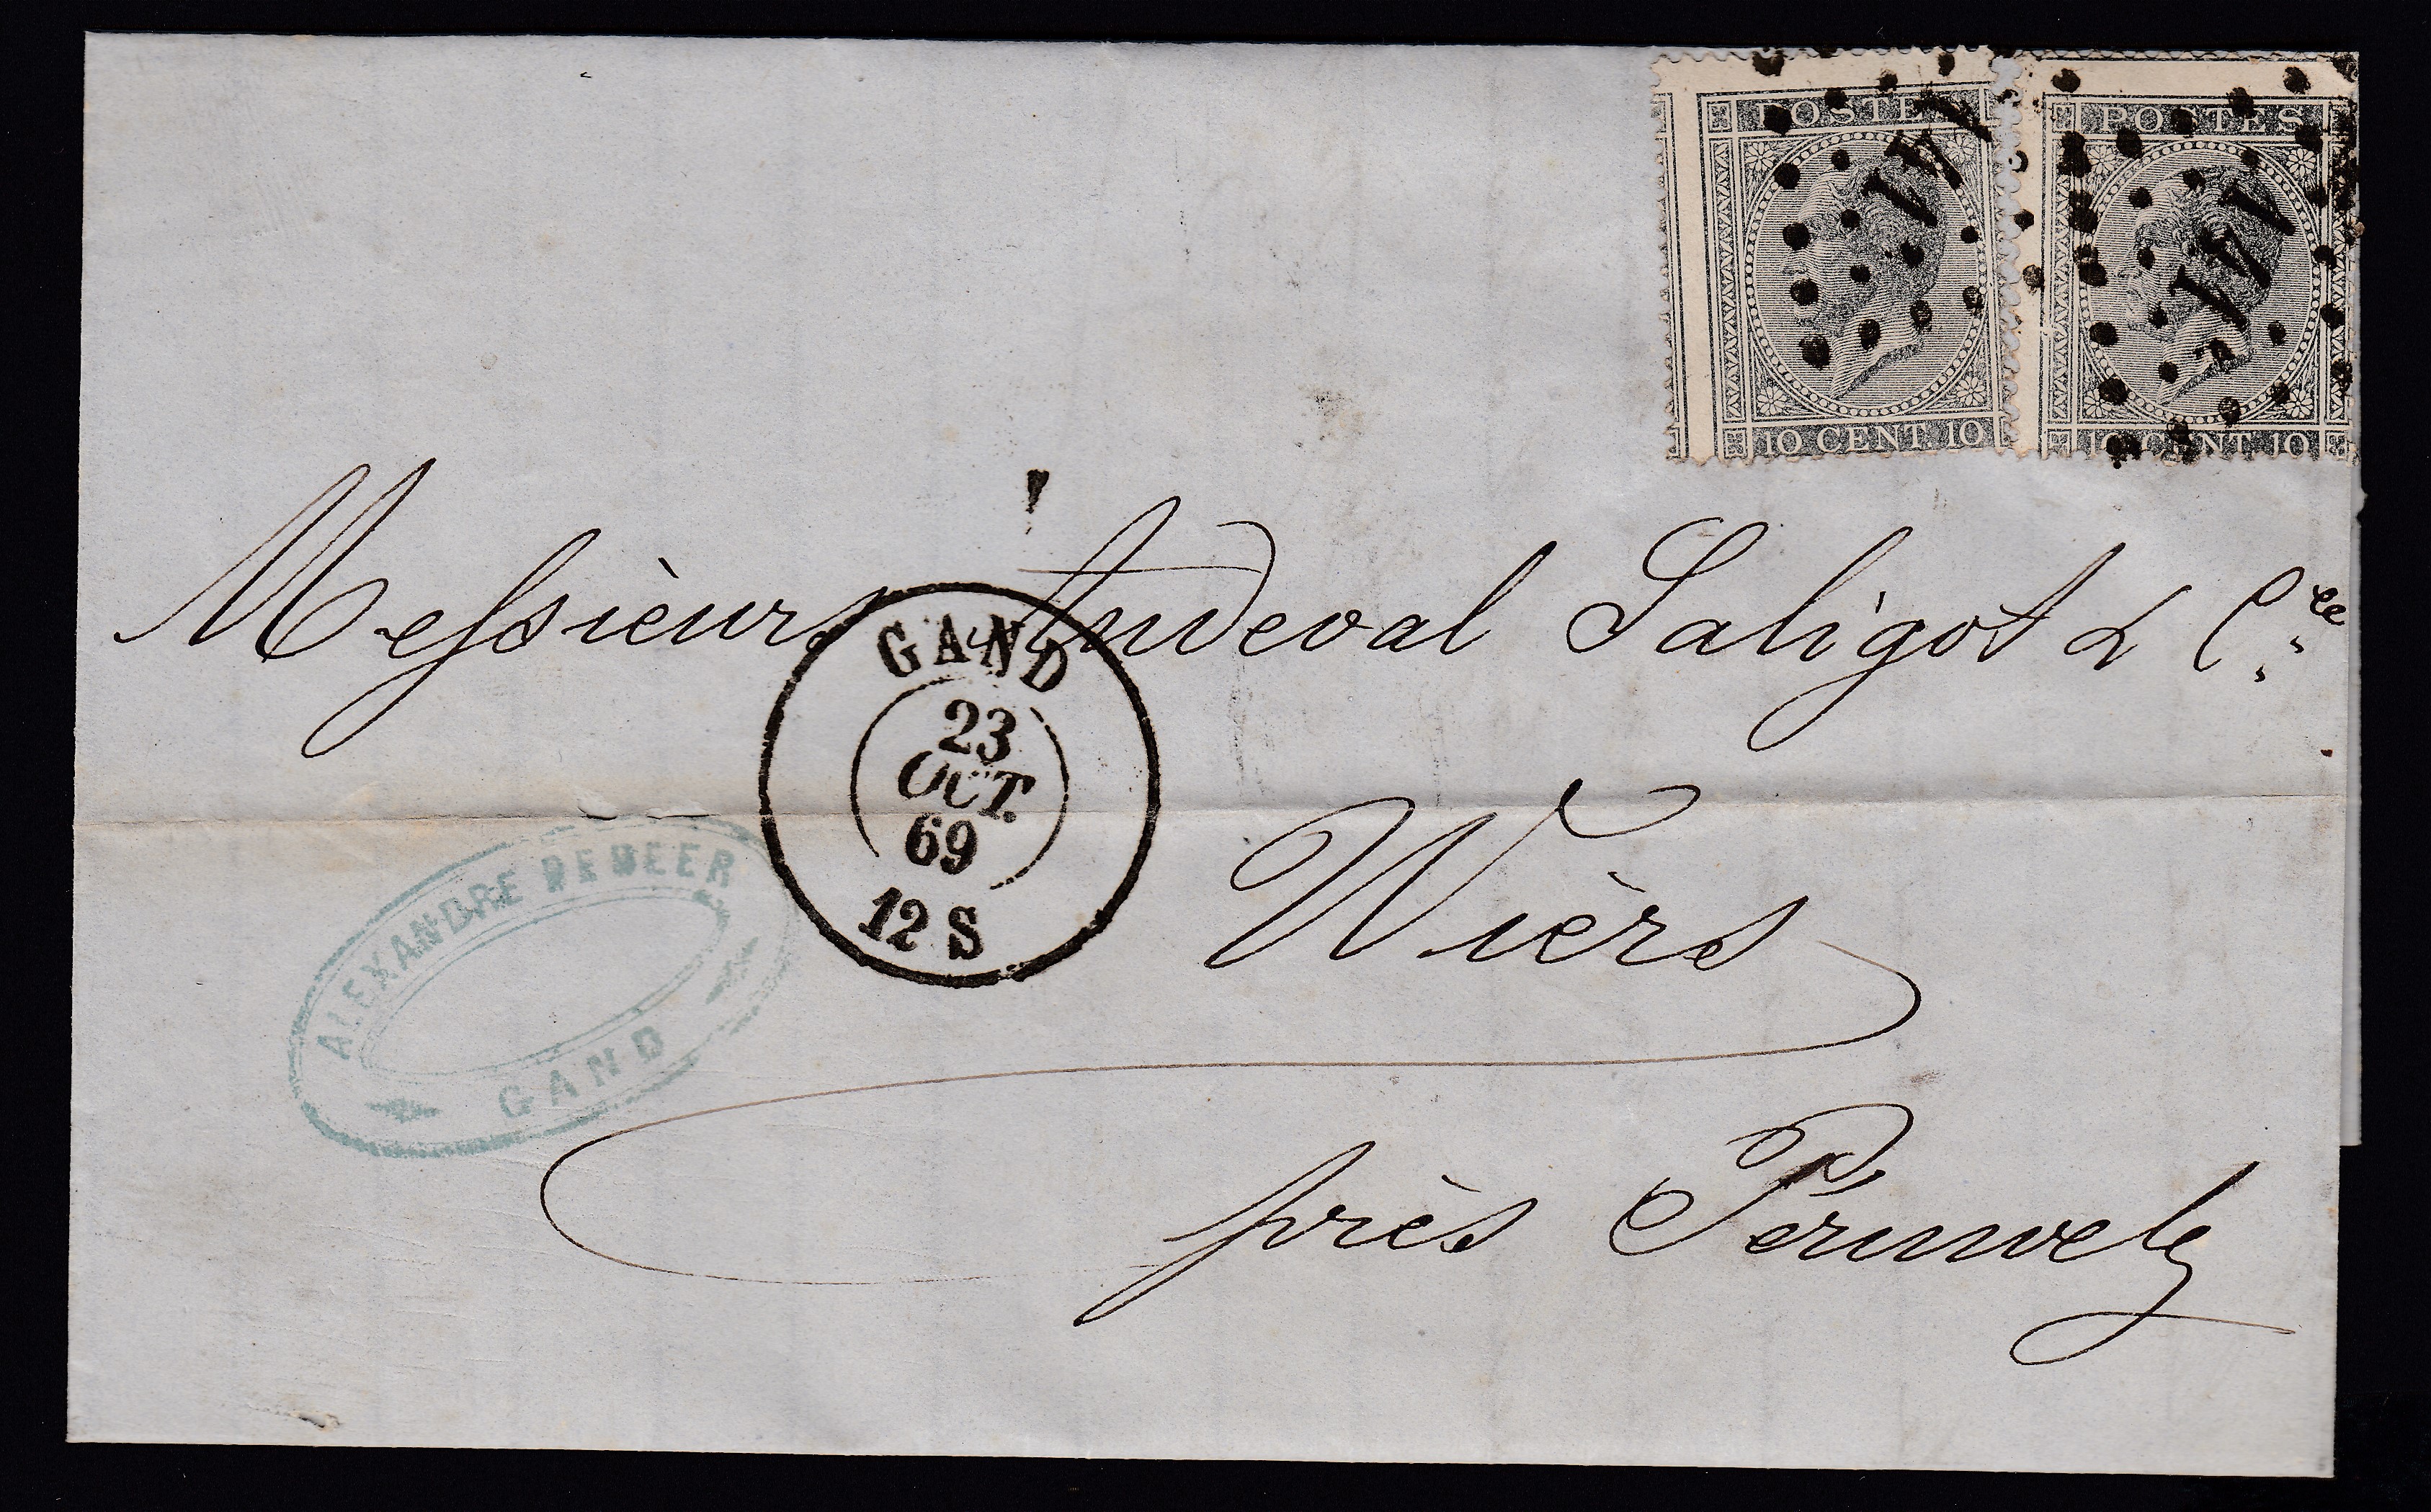 POSTES
POSTES
141
141
10 CENT. 10
10 CENT. 10
Messieurs Andeval Saligot & Cie
GAND
23
OCT.
69
12 S
Wièrs
ALEXANDRE DEBEER
GAND
près Péruwelz